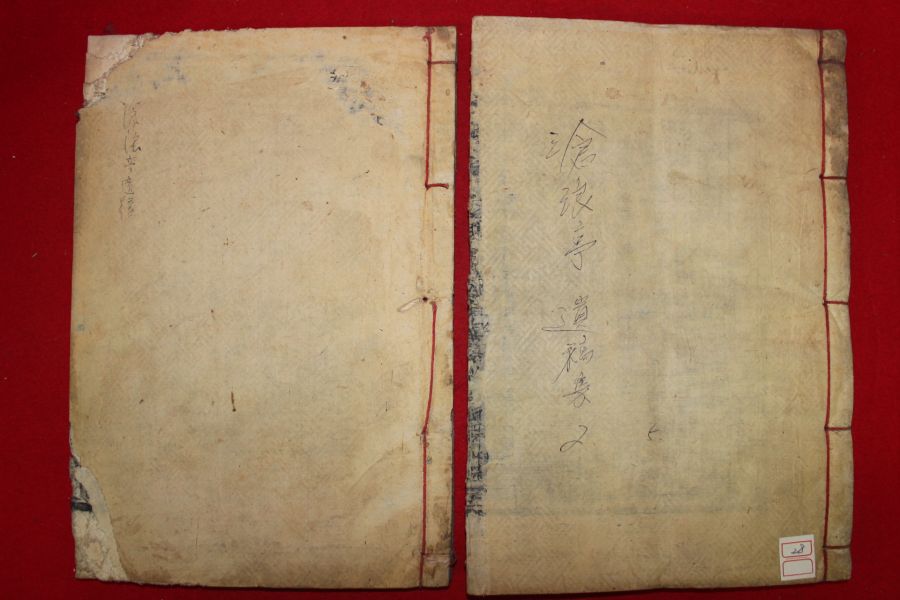 滄浪亭遺稿
滄浪亭 遺稿集 2
28